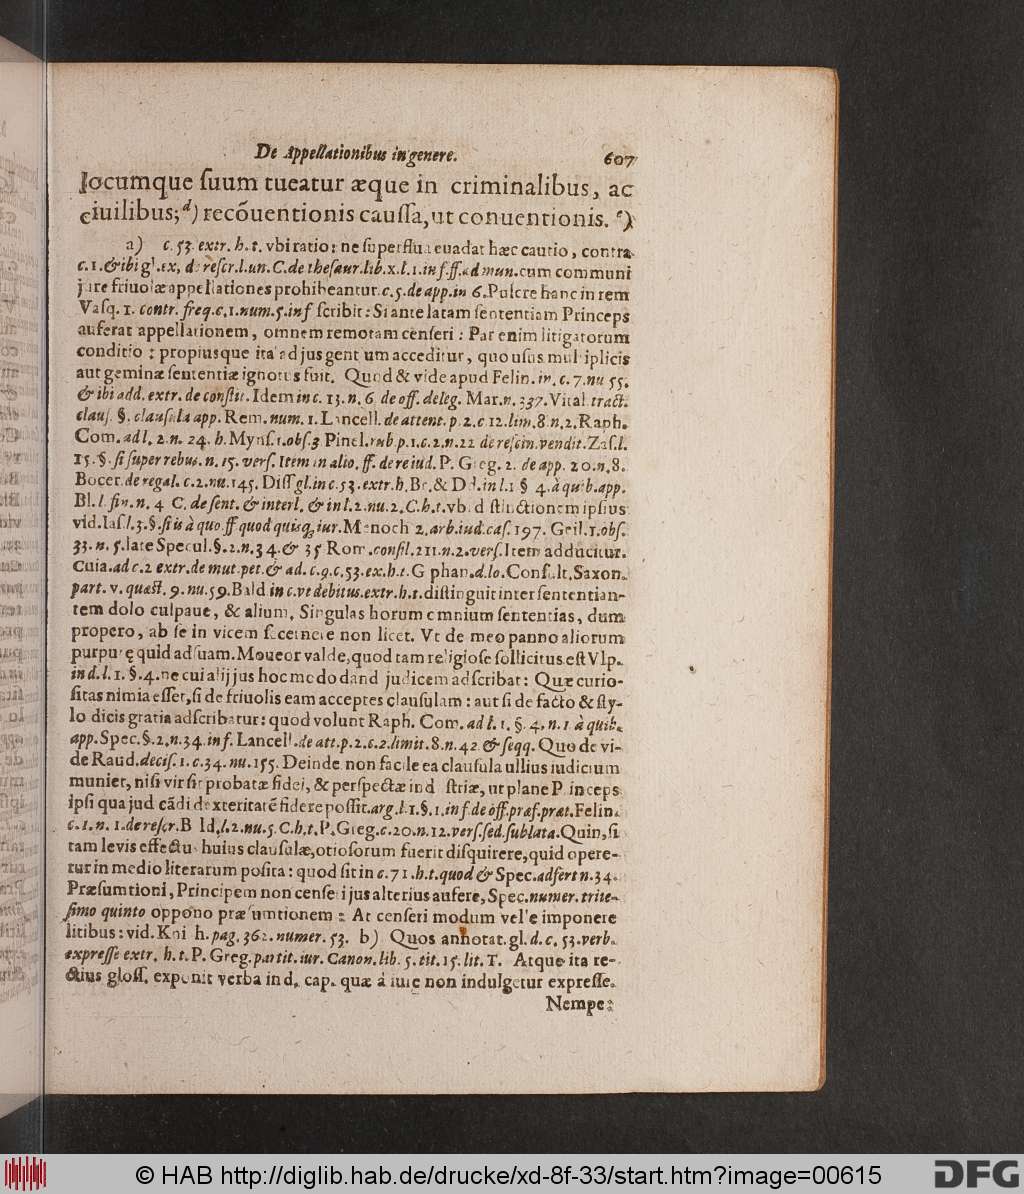 De Appellationibus in genere. 607
locumque ſuum tueatur æque in criminalibus, ac
ciuilibus; d) recõuentionis cauſſa, ut conuentionis. e)
a) c. 53. extr. h. t. vbi ratio: ne ſuperflua euadat hæc cautio, contra
c. 1. & ibi gl. ex, de reſcr. l. un. C. de theſaur. lib. x. l. 1. in f. ff. ad mun. cum communi
jure friuolæ appellationes prohibeantur. c. 5. de app. in 6. Pulcre hanc in rem
Vaſq. 1. contr. freq. c. 1. num. 5. inf ſcribit: Si ante latam ſententiam Princeps
auferat appellationem, omnem remotam cenſeri: Par enim litigatorum
conditio: propiusque ita ad jus gentium acceditur, quo uſus multiplicis
aut geminæ ſententiæ ignotus fuit. Quod & vide apud Felin. in. c. 7. nu 55.
& ibi add. extr. de conſtit. Idem in c. 13. n. 6. de off. deleg. Mar. n. 337. Vital tract.
clauſ. §. clauſula app. Rem. num. 1. Lancell. de attent. p. 2. c. 12. lim. 8. n. 2. Raph.
Com. ad l. 2. n. 24. h. Mynſ. 1. obſ. 3 Pinel. rub p. 1. c. 2. n. 22 de reſcin. vendit. Zaſ. l.
15. §. ſi ſuper rebus. n. 15. verſ. Item in alio. ff. de re iud. P. Greg. 2. de app. 20. n. 8.
Bocer. de regal. c. 2. nu. 145. Diſſ gl. in c. 53. extr. h. Br. & Dd. in l. 1 §. 4. à quib. app.
Bl. l. fin. n. 4 C. de ſent. & interl. & in l. 2. nu. 2. C. h. t. vbi diſtinctionem ipſius
vid. Iaſ. l. 3. §. ſi is à quo. ff quod quisq; iur. Menoch 2. arb. iud. caſ. 197. Geil. 1. obſ.
33. n. 5. late Specul. §. 2. n. 34. & 35 Rom. conſil. 211. n. 2. verſ. Item adducitur.
Cuia. ad c. 2 extr. de mut. pet. & ad. c. 9. c. 53. ex. h. t. Gphan. d. lo. Conſult. Saxon.
part. v. quæſt. 9. nu. 59. Bald in c. vt debitus. extr. h. t. diſtinguit inter ſententian-
tem dolo culpaue, & alium. Singulas horum omnium ſententias, dum
propero, ab ſe in vicem ſecernere non licet. Vt de meo panno aliorum
purpuræ quid adſuam. Moueor valde, quod tam religioſe ſollicitus eſt Vlp.
in d. l. 1. §. 4. ne cui alij jus hoc modo dandi judicem adſcribat: Quæ curio-
ſitas nimia eſſet, ſi de friuolis eam acceptes clauſulam: aut ſi de facto & ſty-
lo dicis gratia adſcribatur: quod volunt Raph. Com. ad l. 1. §. 4. n. 1 à quib.
app. Spec. §. 2. n. 34. inf. Lancell. de att. p. 2. c. 2. limit. 8. n. 42 & ſeqq. Quo de vi-
de Raud. deciſ. 1. c. 34. nu. 155. Deinde non facile ea clauſula ullius iudicium
muniet, niſi vir ſit probatæ fidei, & perſpectæ induſtriæ, ut plane Princeps
ipſi qua judicãdi dexteritatẽ fidere poſſit. arg. l. 1. §. 1. in f. de off. præf. præt. Felin.
c. 1. n. 1. de reſcr. Bald. l. 2. nu. 5. C. h. t. P. Greg. c. 20. n. 12. verſ. ſed ſublata. Quin, ſi
tam levis effectus huius clauſulæ, otioſorum fuerit diſquirere, quid opere-
tur in medio literarum poſita: quod ſit in c. 71. h. t. quod & Spec. adfert n. 34.
Præſumtioni, Principem non cenſeri jus alterius auferre, Spec. numer. trite-
ſimo quinto oppono præſumtionem: At cenſeri modum velle imponere
litibus: vid. Knich. pag. 362. numer. 53. b) Quos annotat. gl. d. c. 53. verb.
expreſſe extr. h. t. P. Greg. partit. iur. Canon. lib. 5. tit. 15. lit. T. Atque ita re-
ctius gloſſ. exponit verba in d. cap. quæ à iure non indulgetur expreſſe.
Nempe:
© HAB http://diglib.hab.de/drucke/xd-8f-33/start.htm?image=00615
DFG